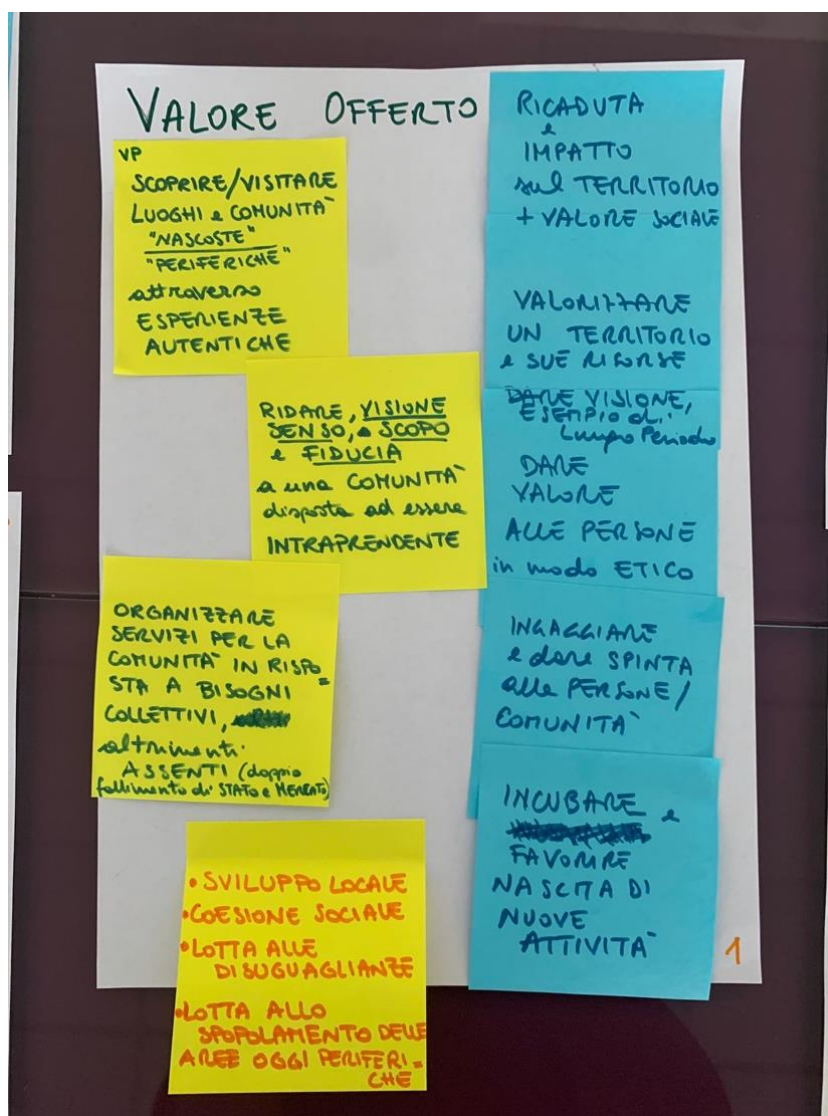 VALORE OFFERTO
VP
SCOPRIRE/VISITARE
LUOGHI e COMUNITÀ
"NASCOSTE"
"PERIFERICHE"
attraverso
ESPERIENZE
AUTENTICHE
RIDARE, VISIONE
SENSO, SCOPO
e FIDUCIA
a una COMUNITÀ
disposta ad essere
INTRAPRENDENTE
ORGANIZZARE
SERVIZI PER LA
COMUNITÀ IN RISPO=
STA A BISOGNI
COLLETTIVI,
altrimenti
ASSENTI (doppio
fallimento di STATO e MERCATO)
• SVILUPPO LOCALE
• COESIONE SOCIALE
• LOTTA ALLE
DISUGUAGLIANZE
• LOTTA ALLO
SPOPOLAMENTO DELLE
AREE OGGI PERIFERI=
CHE
RICADUTA
e
IMPATTO
sul TERRITORIO
+ VALORE SOCIALE
VALORIZZARE
UN TERRITORIO
e SUE RISORSE
DARE VISIONE,
ESEMPIO di
Lungo Periodo
DARE
VALORE
ALLE PERSONE
in modo ETICO
INGAGGIARE
e dare SPINTA
alle PERSONE/
COMUNITÀ
INCUBARE e
FAVORIRE
NASCITA DI
NUOVE
ATTIVITÀ
1